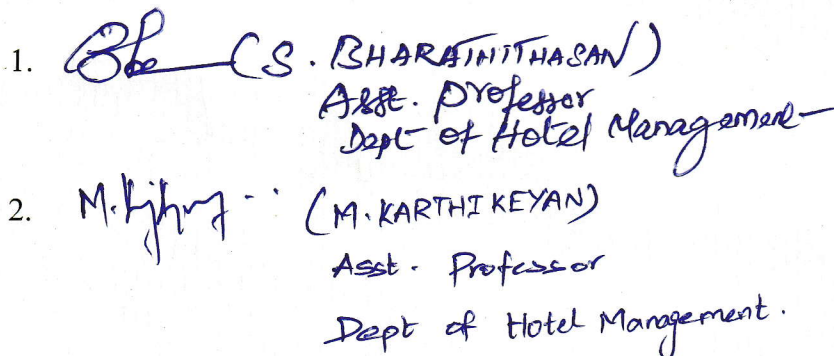 1. (S. BHARATHITHASAN)
Asst. Professor
Dept of Hotel Management
2. M. (M. KARTHIKEYAN)
Asst. Professor
Dept of Hotel Management.